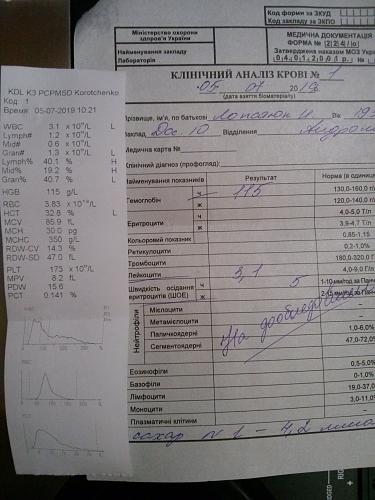 KDL K3 PCPM5D Korotchenko
Код: 1
Время: 05-07-2019 10:21
WBC 3.1 x 10⁹/L L
Lymph# 1.2 x 10⁹/L
Mid# 0.6 x 10⁹/L
Gran# 1.3 x 10⁹/L L
Lymph% 40.1 % H
Mid% 19.2 % H
Gran% 40.7 % L
HGB 115 g/L
RBC 3.83 x 10¹²/L
HCT 32.8 % L
MCV 85.9 fL
MCH 30.0 pg
MCHC 350 g/L
RDW-CV 14.3 %
RDW-SD 47.0 fL
PLT 173 x 10⁹/L
MPV 8.2 fL
PDW 15.6
PCT 0.141 %
WBC
RBC
PLT
Код форми за ЗКУД
Код закладу за ЗКПО
Міністерство охорони
здоров'я України
Найменування закладу
Лабораторія
МЕДИЧНА ДОКУМЕНТАЦІЯ
ФОРМА № 224/о
Затверджена наказом МОЗ України
04.01.2001 р. №
КЛІНІЧНИЙ АНАЛІЗ КРОВІ № 1
05 07 2019
(дата взяття біоматеріалу)
Прізвище, ім'я, по батькові
Відділення
Медична карта №
Клінічний діагноз (профогляд):
Найменування показників Результат Норма (в одиницях
Гемоглобін ч 115 130,0-160,0 г/л
ж 120,0-140,0 г/л
Еритроцити ч 4,0-5,0 Т/л
ж 3,9-4,7 Т/л
Кольоровий показник 0,85-1,15
Ретикулоцити 0,2-1,0%
Тромбоцити 180,0-320,0 Г/л
Лейкоцити 3,1 4,0-9,0 Г/л
Швидкість осідання ч 5 1-10 мм/год за Панч
еритроцитів (ШОЕ) ж 2-15 мм/год за Панч
Нейтрофіли
Мієлоцити
Метамієлоцити
Паличкоядерні 1,0-6,0%
Сегментоядерні 47,0-72,0%
На дообследовании
Еозинофіли 0,5-5,0%
Базофіли 0-1,0%
Лімфоцити 19,0-37,0
Моноцити 3,0-11,0
Плазматичні клітини
сахар N 1 - 4,2